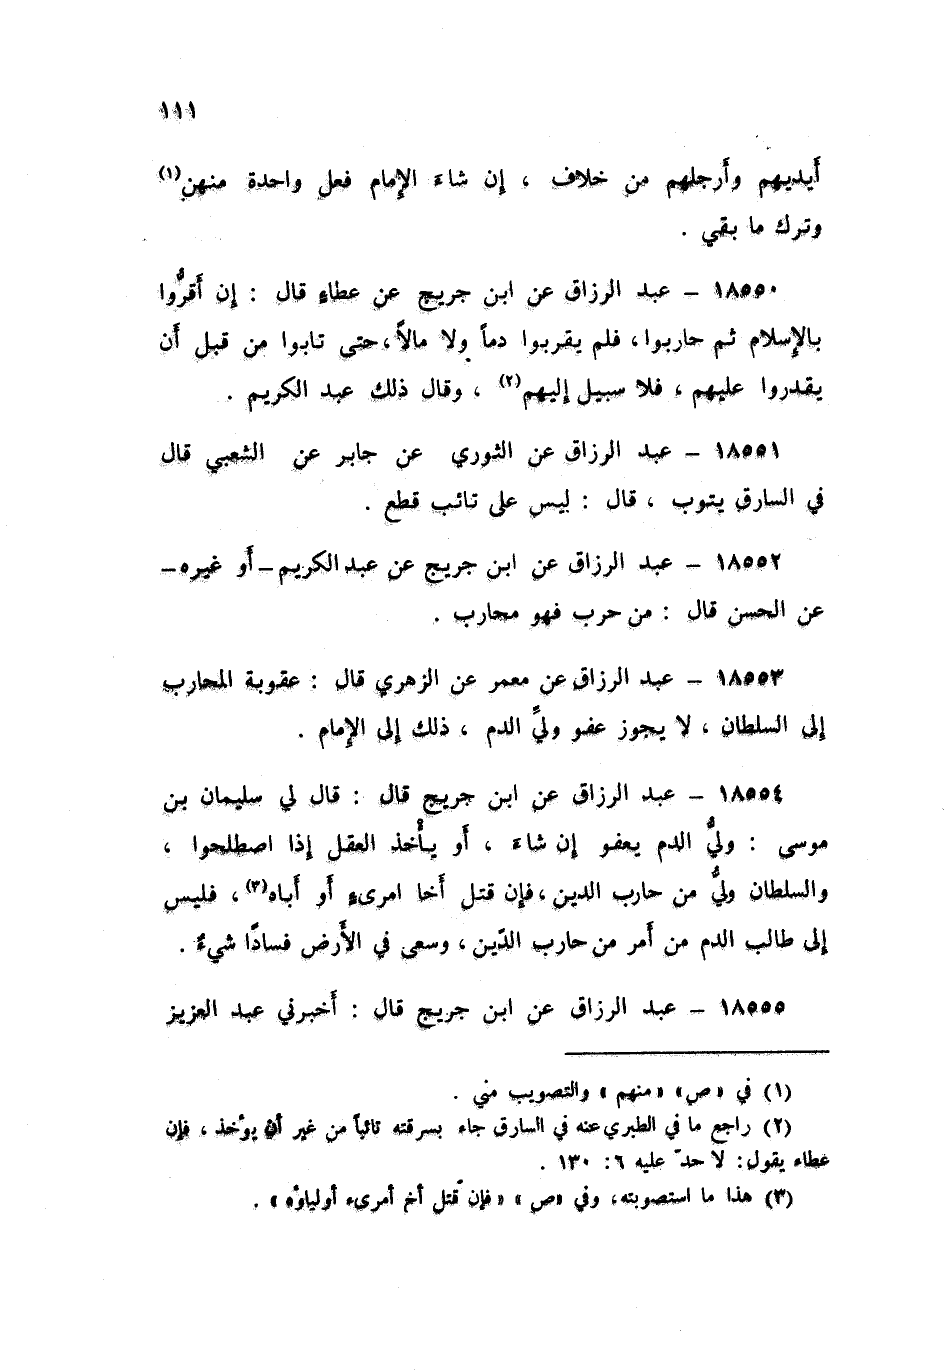 ١١١
أَيديهم وأَرجلهم من خلاف ، إن شاءَ الإمام فعل واحدة منهن(١)
وترك ما بقي .
١٨٥٥٠ – عبد الرزاق عن ابن جريج عن عطاءٍ قال : إن أَقرُّوا
بالإسلام ثم حاربوا، فلم يقربوا دماً ولا مالاً، حتى تابوا من قبل أَن
يقدروا عليهم ، فلا سبيل إليهم(٢) ، وقال ذلك عبد الكريم .
١٨٥٥١ – عبد الرزاق عن الثوري عن جابر عن الشعبي قال
في السارق يتوب ، قال : ليس على تائب قطع .
١٨٥٥٢ – عبد الرزاق عن ابن جريج عن عبد الكريم – أَو غيره –
عن الحسن قال : من حرب فهو محارب .
١٨٥٥٣ – عبد الرزاق عن معمر عن الزهري قال : عقوبة المحارب
إلى السلطان ، لا يجوز عفو وليِّ الدم ، ذلك إلى الإمام .
١٨٥٥٤ – عبد الرزاق عن ابن جريج قال : قال لي سليمان بن
موسى : وليُّ الدم يعفو إن شاءَ ، أَو يأْخذ العقل إذا اصطلحوا ،
والسلطان وليُّ من حارب الدين ، فإن قتل أَخا امرىءٍ أَو أَباه(٣) ، فليس
إلى طالب الدم من أَمر من حارب الدّين ، وسعى في الأَرض فسادًا شيءٌ .
١٨٥٥٥ – عبد الرزاق عن ابن جريج قال : أَخبرني عبد العزيز
(١) في «ص» «منهم» والتصويب مني .
(٢) راجع ما في الطبري عنه في السارق جاء بسرقته تائباً من غير أن يؤخذ ، فإن
عطاء يقول: لا حدّ عليه ٦: ١٣٠ .
(٣) هذا ما استصوبته، وفي «ص» «فإن قتل أخ أمرىء أولياؤه» .